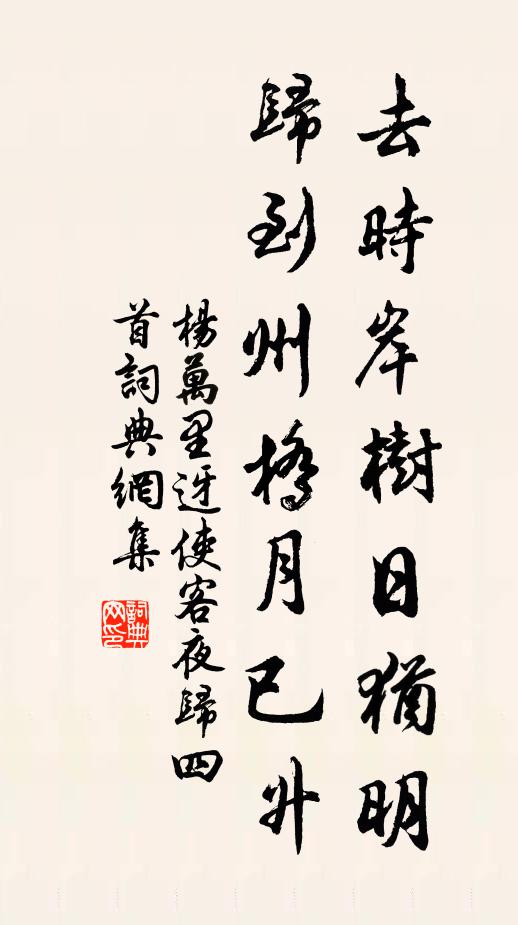 去時岸樹日猶明
歸到州橋月已升
楊萬里迓使客夜歸四
首詞典網集
詞典
网印